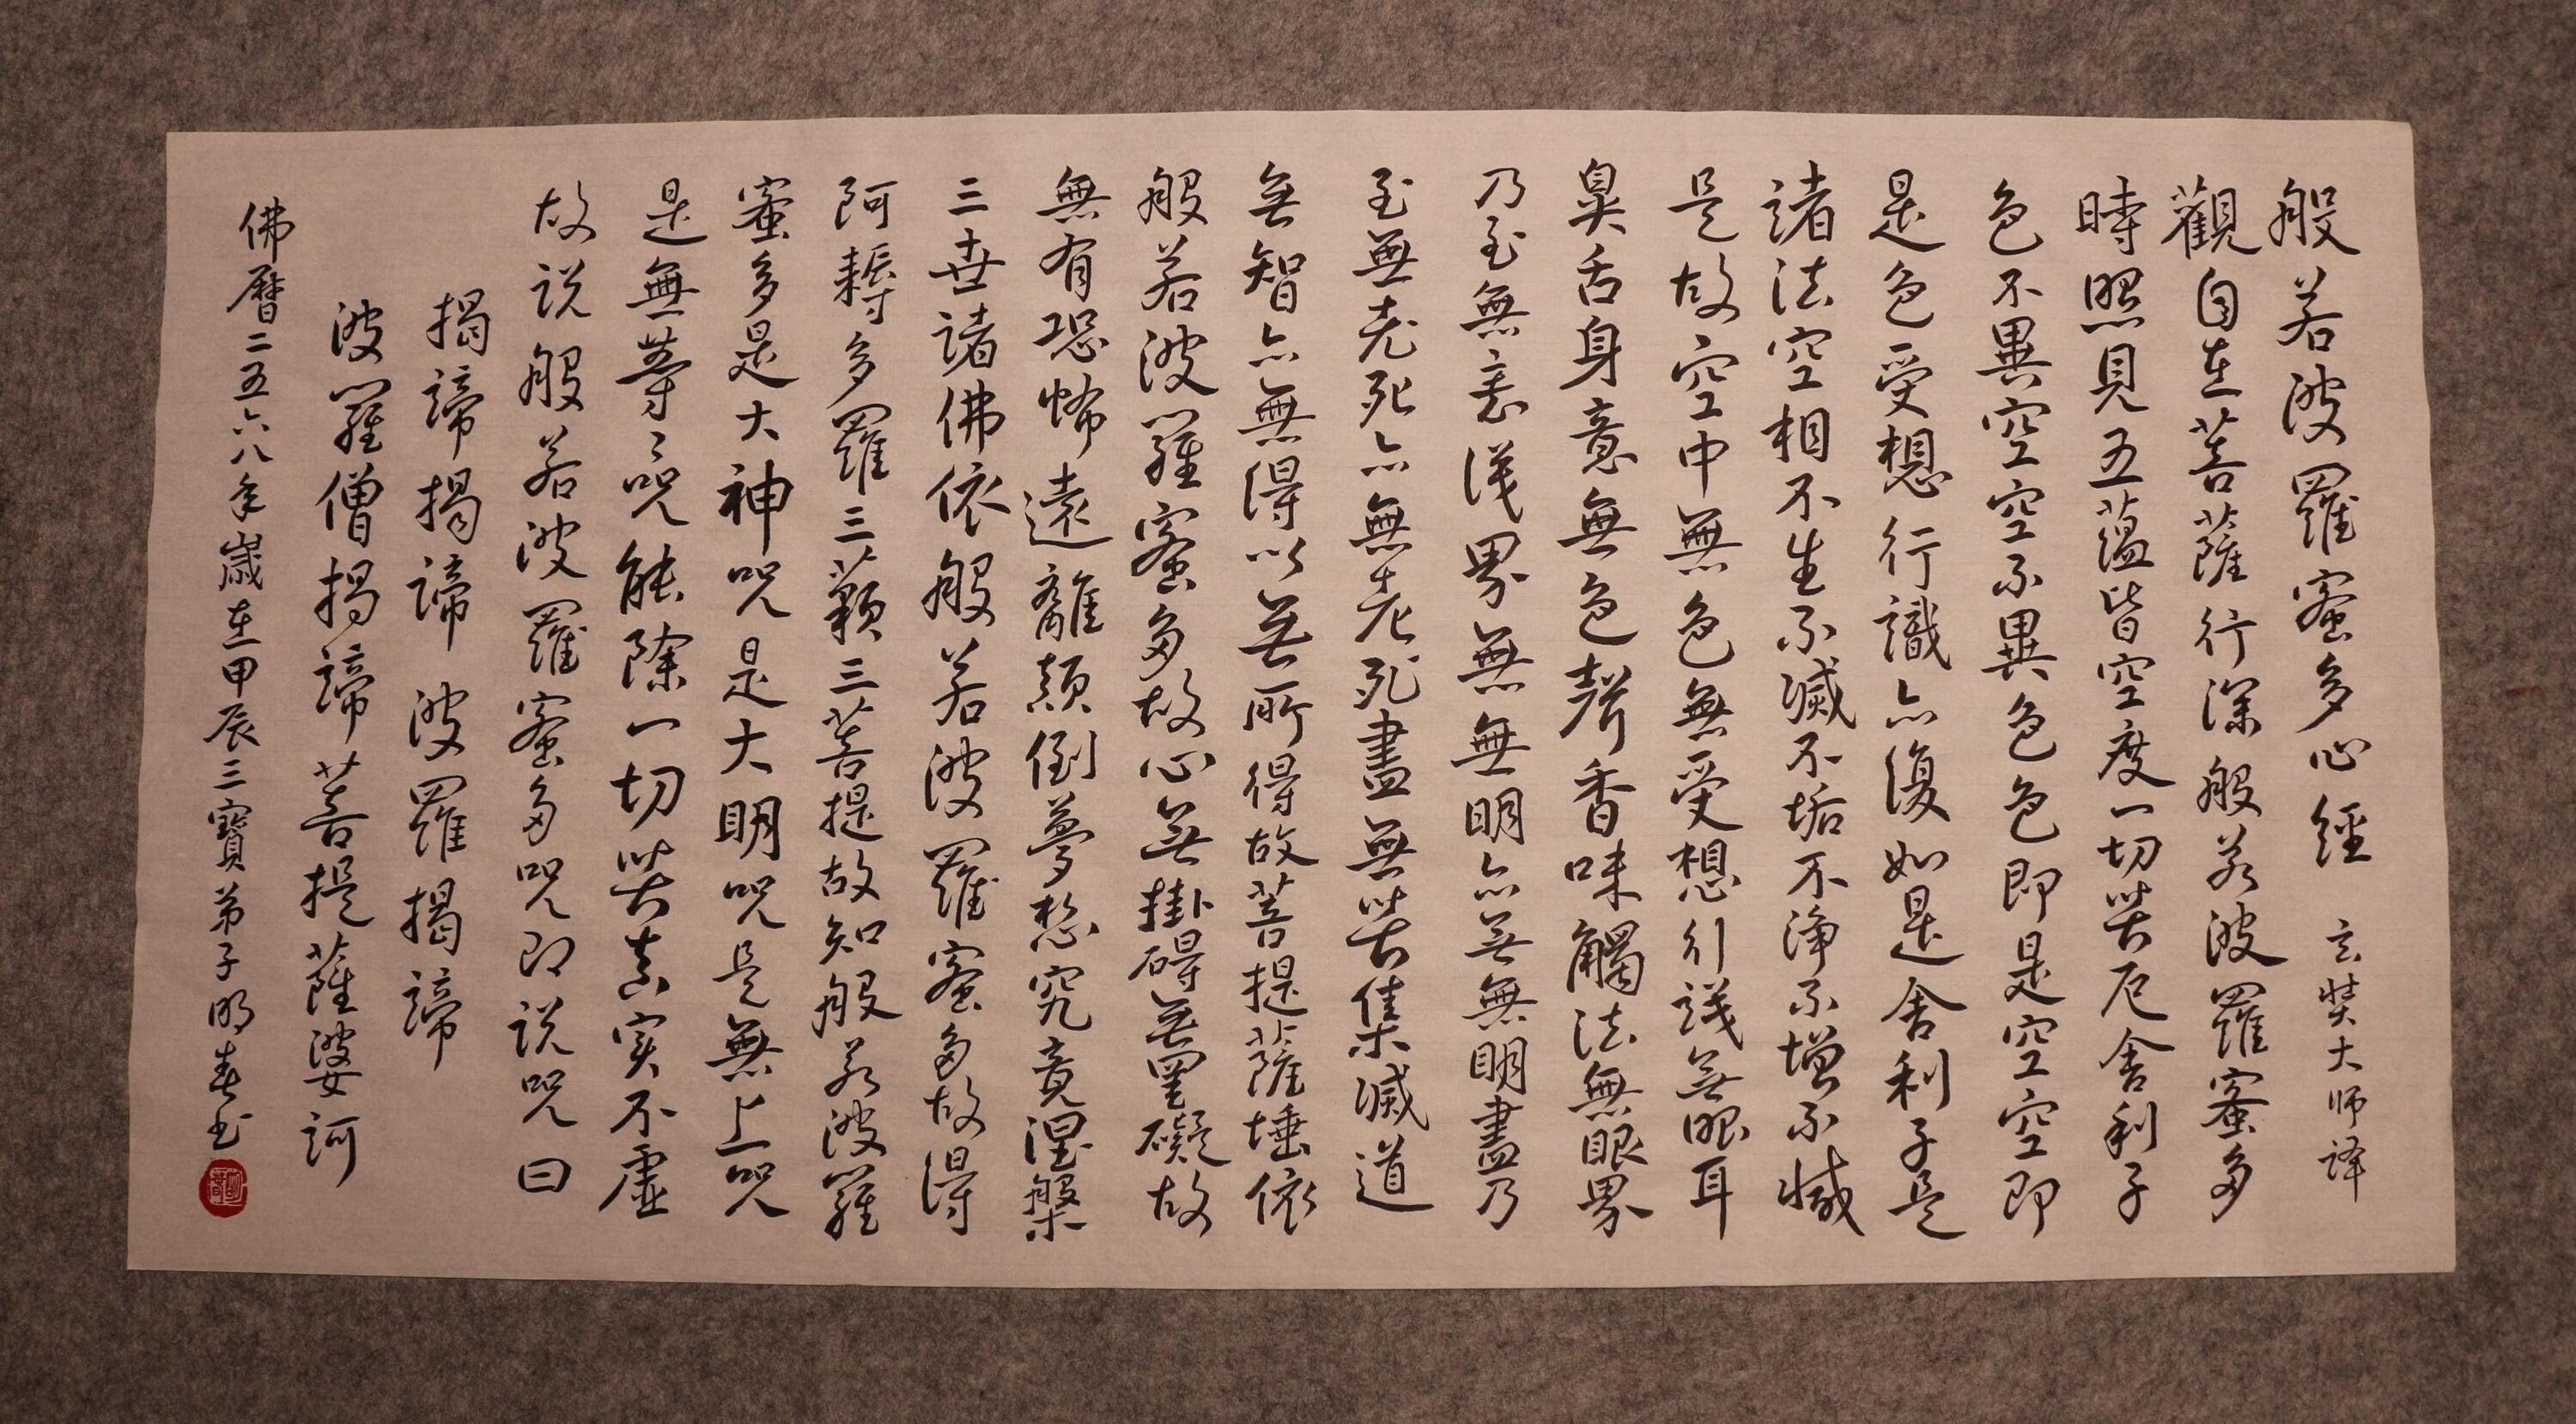 般若波羅蜜多心經 玄奘大师译
觀自在菩薩行深般若波羅蜜多
時照見五蘊皆空度一切苦厄舍利子
色不異空空不異色色即是空空即
是色受想行識亦復如是舍利子是
諸法空相不生不滅不垢不淨不增不減
是故空中無色無受想行識無眼耳
鼻舌身意無色聲香味觸法無眼界
乃至無意識界無無明亦無無明盡乃
至無老死亦無老死盡無苦集滅道
無智亦無得以無所得故菩提薩埵依
般若波羅蜜多故心無掛碍無罣礙故
無有恐怖遠離顛倒夢想究竟涅槃
三世諸佛依般若波羅蜜多故得
阿耨多羅三藐三菩提故知般若波羅
蜜多是大神咒是大明咒是無上咒
是無等〻咒能除一切苦真实不虛
故说般若波羅蜜多咒即说咒曰
揭諦揭諦 波羅揭諦
波羅僧揭諦 菩提薩婆訶
佛曆二五六八年歲在甲辰三寶弟子明春书